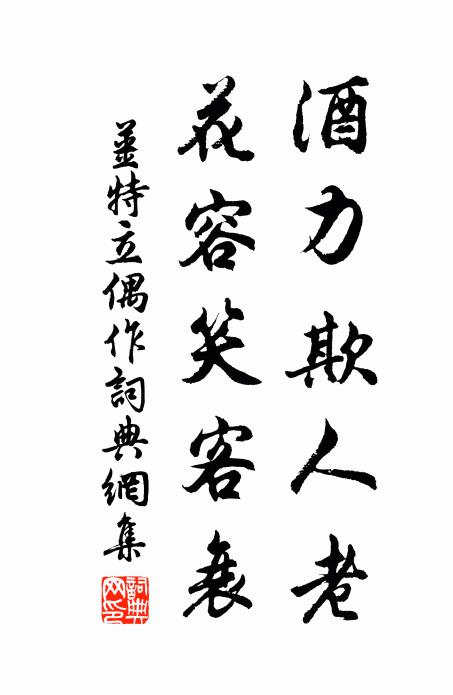 酒力欺人老
花容笑客衰
姜特立偶作詞典網集
詞典网印